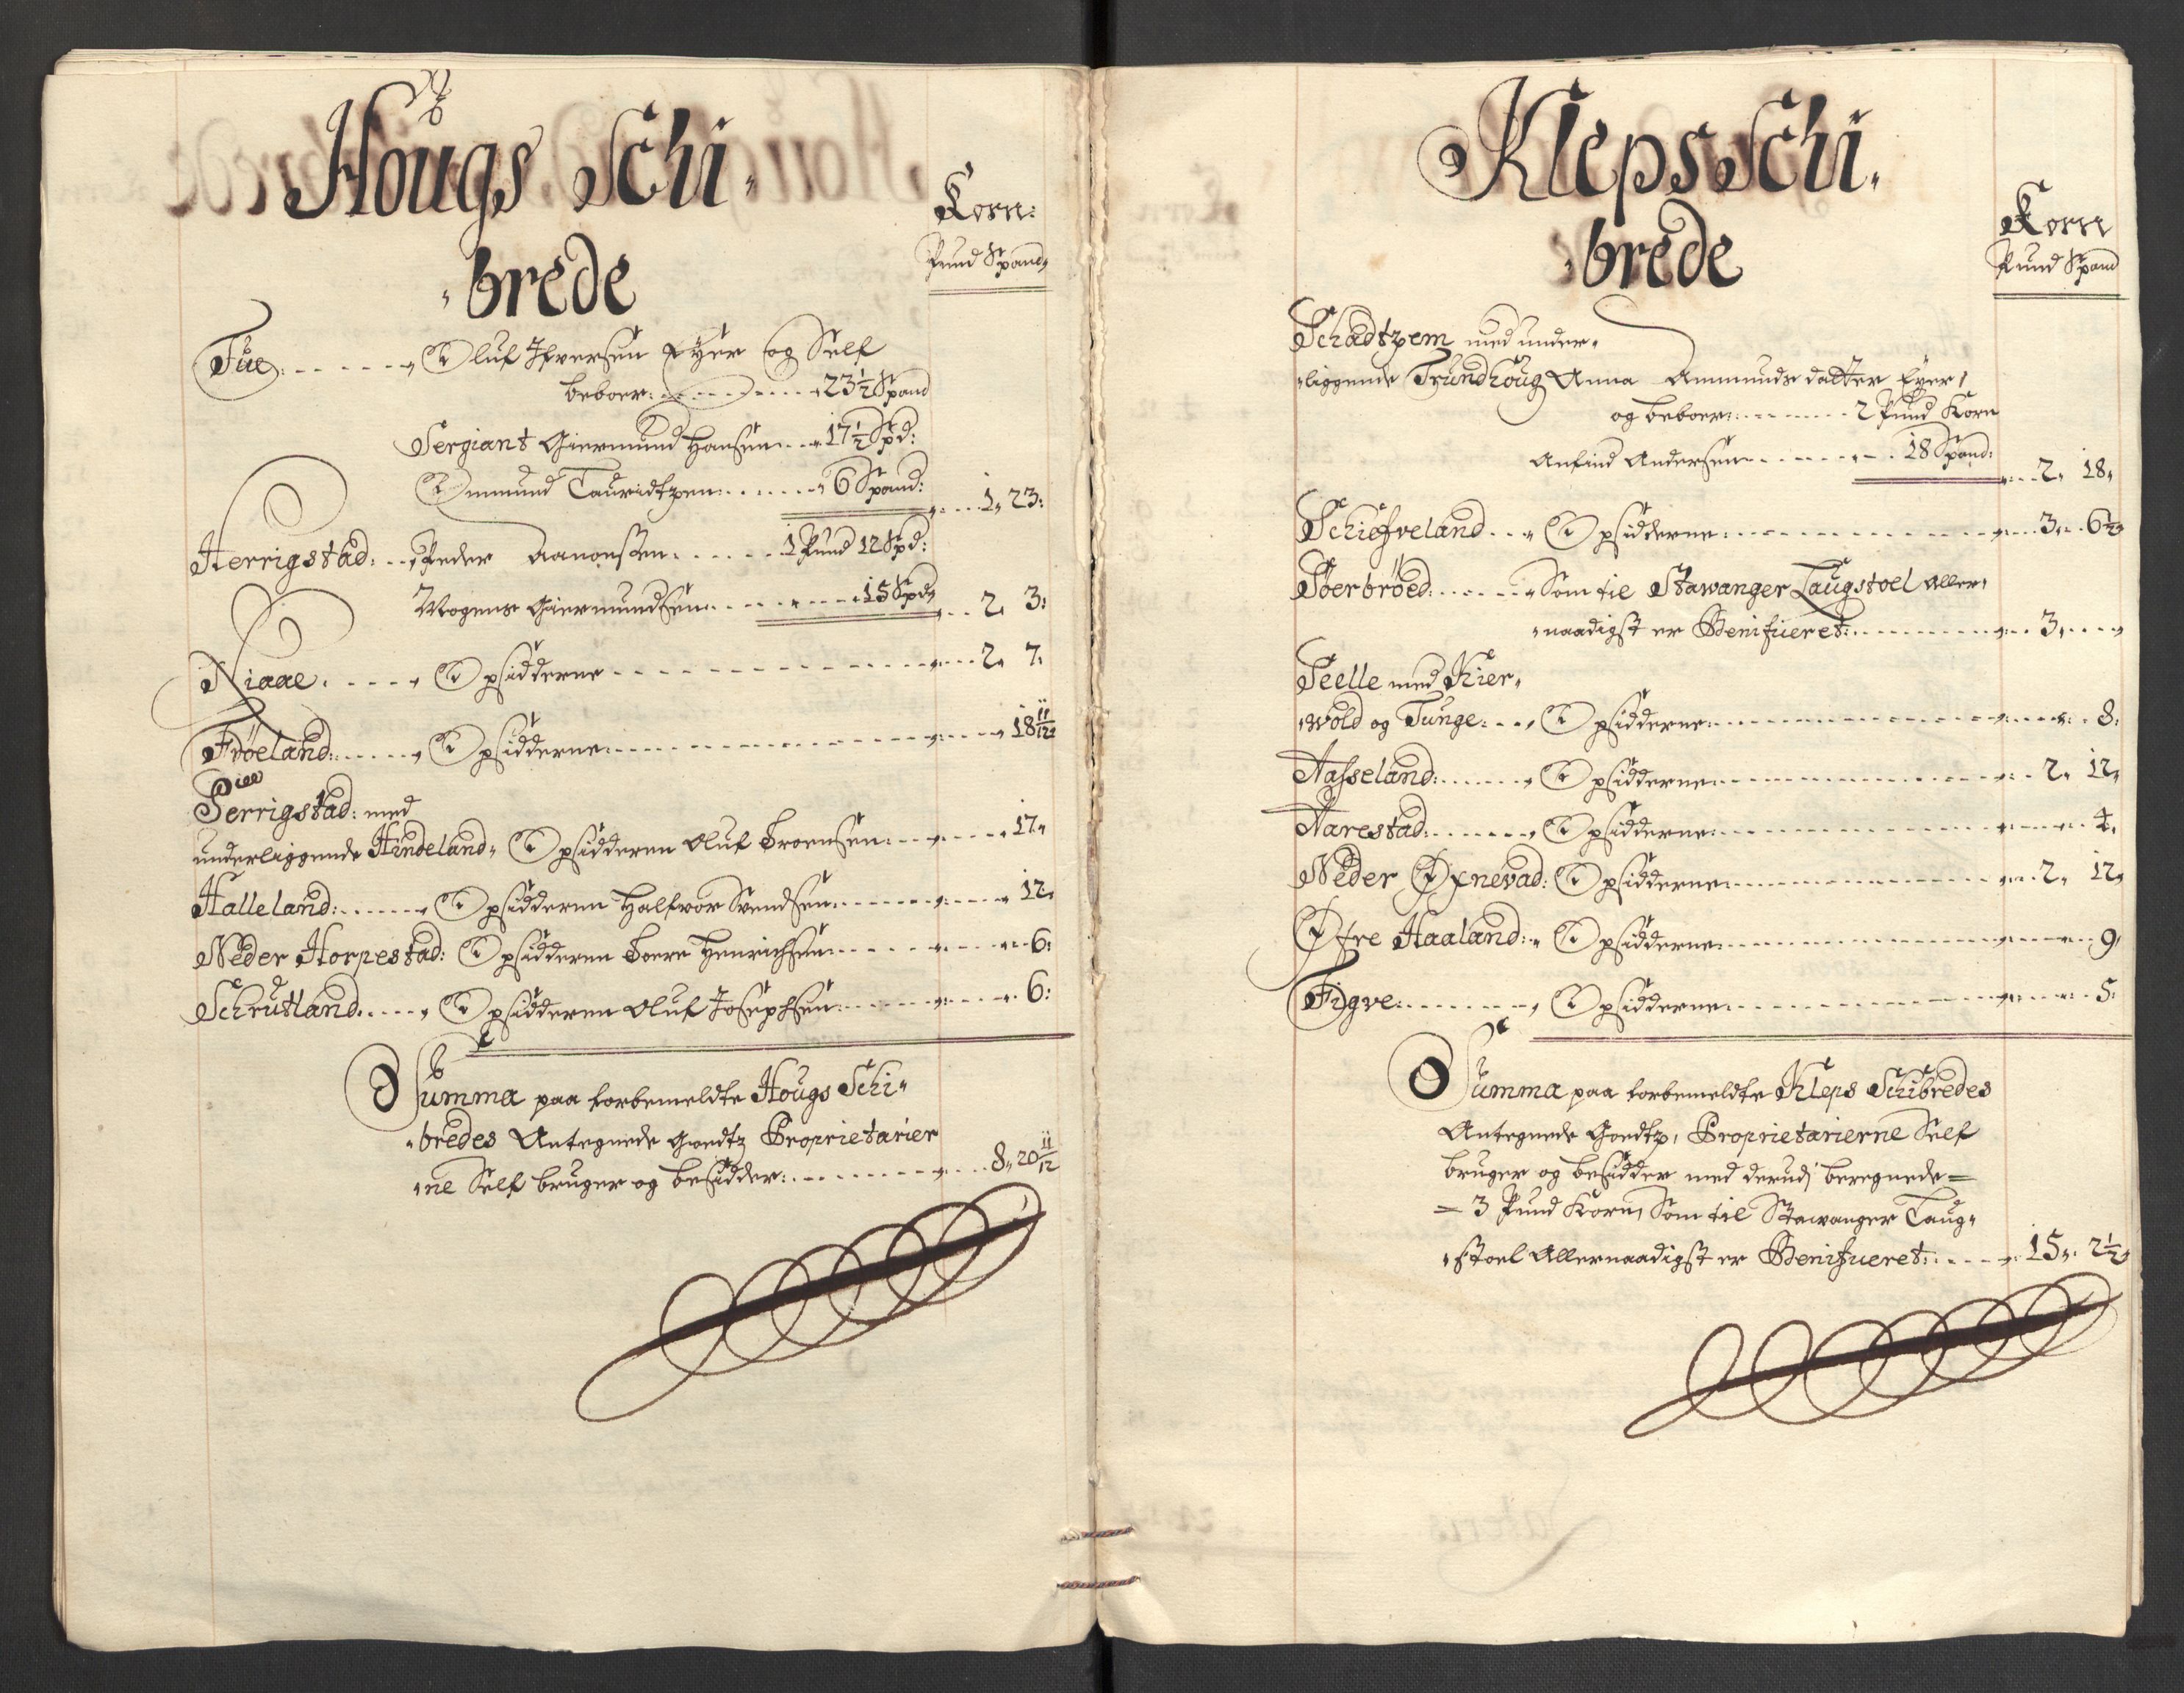 Hougs Schi-
-brede
Korn:
Pund Spand
Tue. Oluf Ifversen Eyer og Self
beboer: 23½ Spand
Sergiant Giermund Hansen 17½ Spd:
Ommund Tauridtzen 6 Spand: 1, 23:
Herrigstad: Peder Aanonsen 1 Pund 12 Spd:
Mogens Giermundsen 15 Spd 2, 3:
Niaae. Opsidderne 2, 7.
Frøeland: Opsidderne 18 11/12
Lill
Serrigstad: med
underliggende Hindeland, Opsidderen Oluf Troensen: 17,
Halleland: Opsidderen Halfvor Svendsen 12.
Neder Horpestad: Opsidderen Toere Henrichsen 6:
Schrutland. Opsidderen Oluf Josephsen 6:
Summa paa forbemeldte Hougs Schi-
-bredes Antegnede Goedtz Proprietarier
-ne Self bruger og besidder: 8, 20 11/12
Kleps Schi-
-brede
Korn
Pund Spand
Schadtzem med under-
-liggende Trundhoug Anna Ammunds datter Eyer
og beboer: 2 Pund Korn
Anfind Andersen 18 Spand: 2, 18,
Schiefveland Opsidderne: 3, 6½
Søerbrøed. Som til Stawanger Laugstoel Aller-
-naadigst er Benifueret: 3,
Seelle med Kier-
-wold og Tunge: Opsidderne 8:
Aasseland: Opsidderne 2, 12,
Aarestad: Opsidderne 4.
Neder Øxnevad: Opsidderne 2, 12,
Øfre Haaland: Opsidderne 9,
Figve: Opsidderne 5:
Summa paa forbemeldte Kleps Schibredes
Antegnede Goedtz, Proprietarierne Self
bruger og besidder med derudj beregnede=
=3 Pund Korn, Som til Stawanger Laug-
-stoel Allernaadigst er Benifueret: 15, 2½